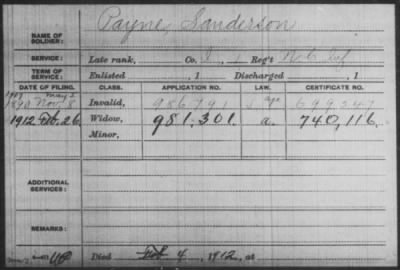 Payne, Sanderson
NAME OF SOLDIER:
SERVICE: Late rank, Co. I, 1 Reg't N.C. Inf
TERM OF SERVICE: Enlisted , 1 Discharged , 1
DATE OF FILING. CLASS. APPLICATION NO. LAW. CERTIFICATE NO.
1907 May 2
1890 Nov. 8 Invalid, 986791 Age 699247
1912 Feb. 26. Widow, 981,301. a. 740,116.
Minor,
ADDITIONAL SERVICES:
REMARKS:
Died Feb 4, 1912, at